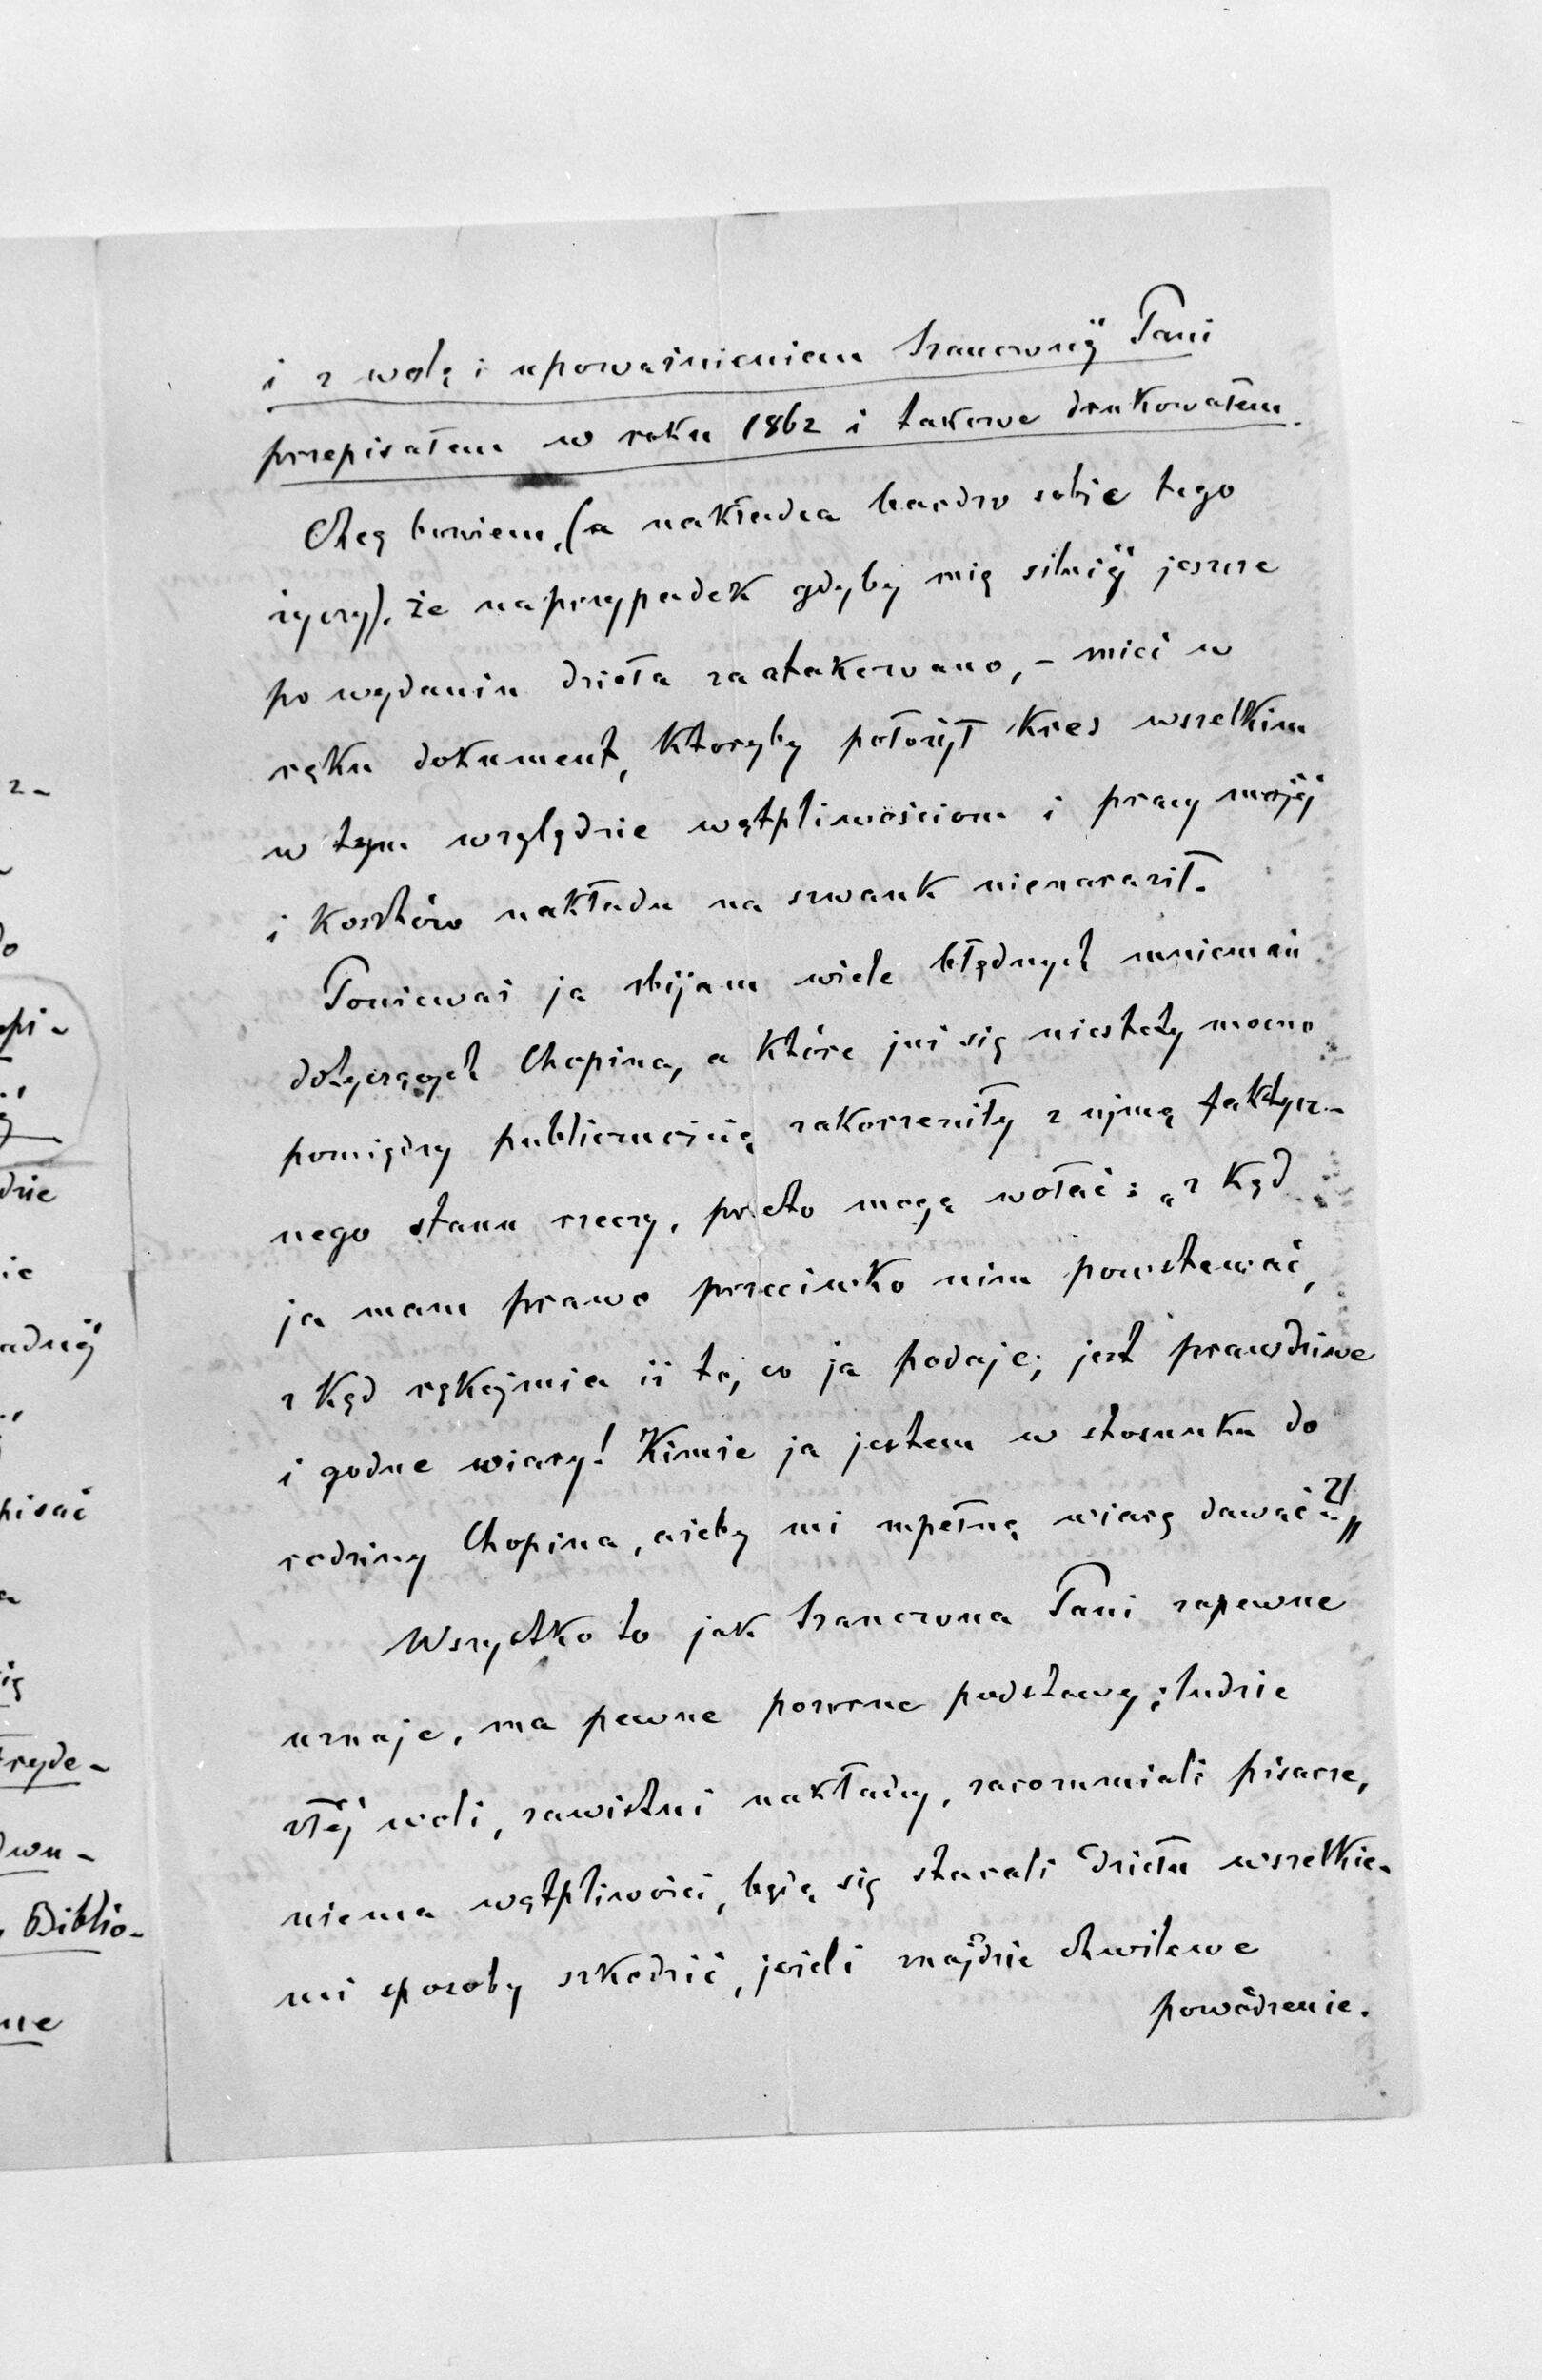 i z wolą i upoważnieniem Szanownéj Pani
przepisałem w roku 1862 i takowe drukowałem.
Chcę bowiem, (a nakładca bardzo sobie tego
życzy), że naprzypadek gdyby mię silniéj jeszcze
po wydaniu dzieła zaatakowano, - mieć w
ręku dokument, ktoryby położył kres wszelkim
w tym względzie wątpliwościom i pracy mojéj
i kosztów nakładu na szwank nienaraził.
Ponieważ ja zbijam wiele błędnych mniemań
dotyczących Chopina, a które już się niestety mocno
pomiędzy publicznością zakorzeniły z ujmą faktycz-
nego stanu rzeczy, przeto mogą wołać: „z kąd
ja mam prawo przeciwko nim powstawać,
z kąd rękojmia iż to, co ja podaję, jest prawdziwe
i godne wiary! Kimże ja jestem w stosunku do
rodziny Chopina, ażeby mi zupełną wiarę dawać?!"
Wszystko to jak Szanowna Pani zapewne
uznaje, ma pewne pozorne podstawy; ludzie
złéj woli, zawistni nakładcy, zarozumiali pisarze,
niema wątpliwości, będą się starali dziełu wszelkie-
mi sposoby szkodzić, jeżeli znajdzie chwilowe
powodzenie.
2-
do
opi-
dzie
ie
adnéj
pisać
Fryde-
dwu-
Biblio-
me